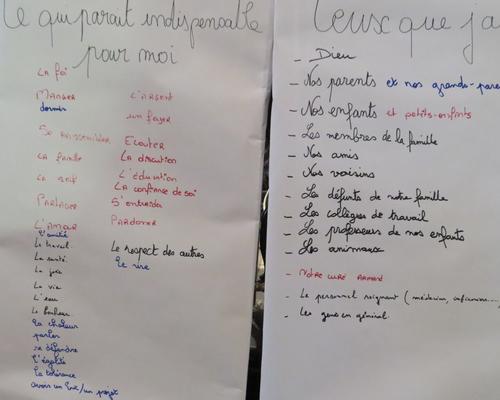 Ce qui parait indispensable
pour moi
La foi
Manger
dormir
Se rassembler
La famille
La soif
Partager
L'amour
l'amitié
Le travail
La santé
La joie
La vie
L'eau
Le bonheur
la chaleur
parler
se défendre
l'égalité
la tolérance
avoir un but/un projet
L'argent
un foyer
Ecouter
La discution
L'éducation
La confiance de soi
S'entraider
Pardonner
Le respect des autres
Le rire
Ceux que j'a
- Dieu
- Nos parents et nos grands-paren
- Nos enfants et petits-enfants
- Les membres de la famille
- Nos amis
- Nos voisins
- Les défunts de notre famille
- Les collègues de travail
- Les professeurs de nos enfants
- Les animaux
- Notre curé Armand
- Le personnel soignant (médecins, infirmiers...
- Les gens en général